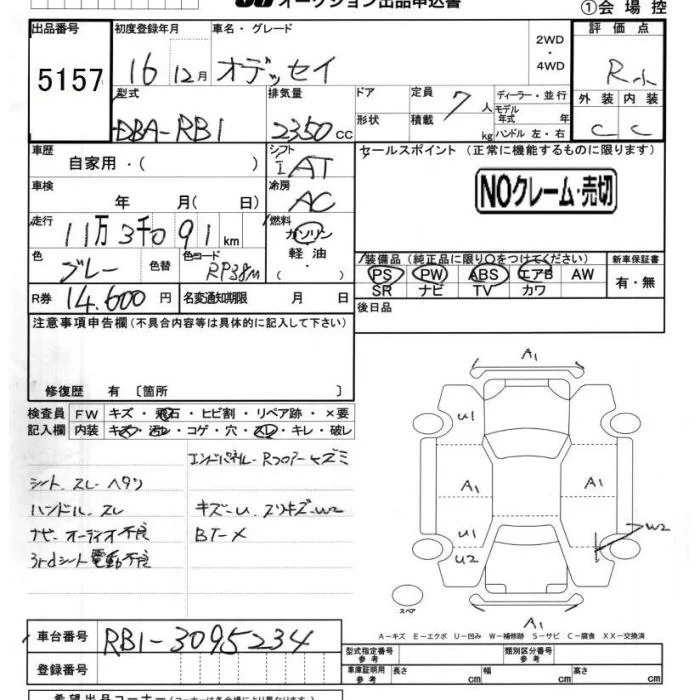 オークション出品申込書
①会場控
出品番号 初度登録年月 車名・グレード 2WD・4WD 評価点
5157 16 12月 オデッセイ R小
型式 排気量 ドア 定員 7人 ディーラー・並行 外装 内装
DBA-RB1 2350cc 形状 積載 kg モデル年式 年 C C
ハンドル 左・右
車歴 シフト セールスポイント (正常に機能するものに限ります)
自家用・( ) I AT
NOクレーム・売切
車検 年 月( 日) 冷房 AC
走行 11万3千091km 燃料 ガソリン
軽油・( )
色 ブルー 色替 色コード RP38M
装備品(純正品に限り○をつけてください) 新車保証書
PS PW ABS エアB AW 有・無
SR ナビ TV カワ
R券 14,600円 名変通知期限 月 日
後日品
注意事項申告欄(不具合内容等は具体的に記入して下さい)
修復歴 有〔箇所 〕
検査員 FW キズ・飛石・ヒビ割・リペア跡・×要
記入欄 内装 キズ・汚レ・コゲ・穴・スレ・キレ・破レ
エンドパネル-Rフロアーキズミ
シート、スレ-ヘタリ
ハンドル、スレ キズ-U、スリキズ-W2
ナビ-オーディオ不良 BT-X
3rdシート電動不良
A1
U1
A1 A1
U1
U2
W2
スペア
A1
A-キズ E-エクボ U-凹み W-補修跡 S-サビ C-腐食 XX-交換済
車台番号 RB1-3095234
型式指定番号 参考 類別区分番号 参考
登録番号
車庫証明用 参考 長さ cm 幅 cm 高さ cm
希望出品コーナー